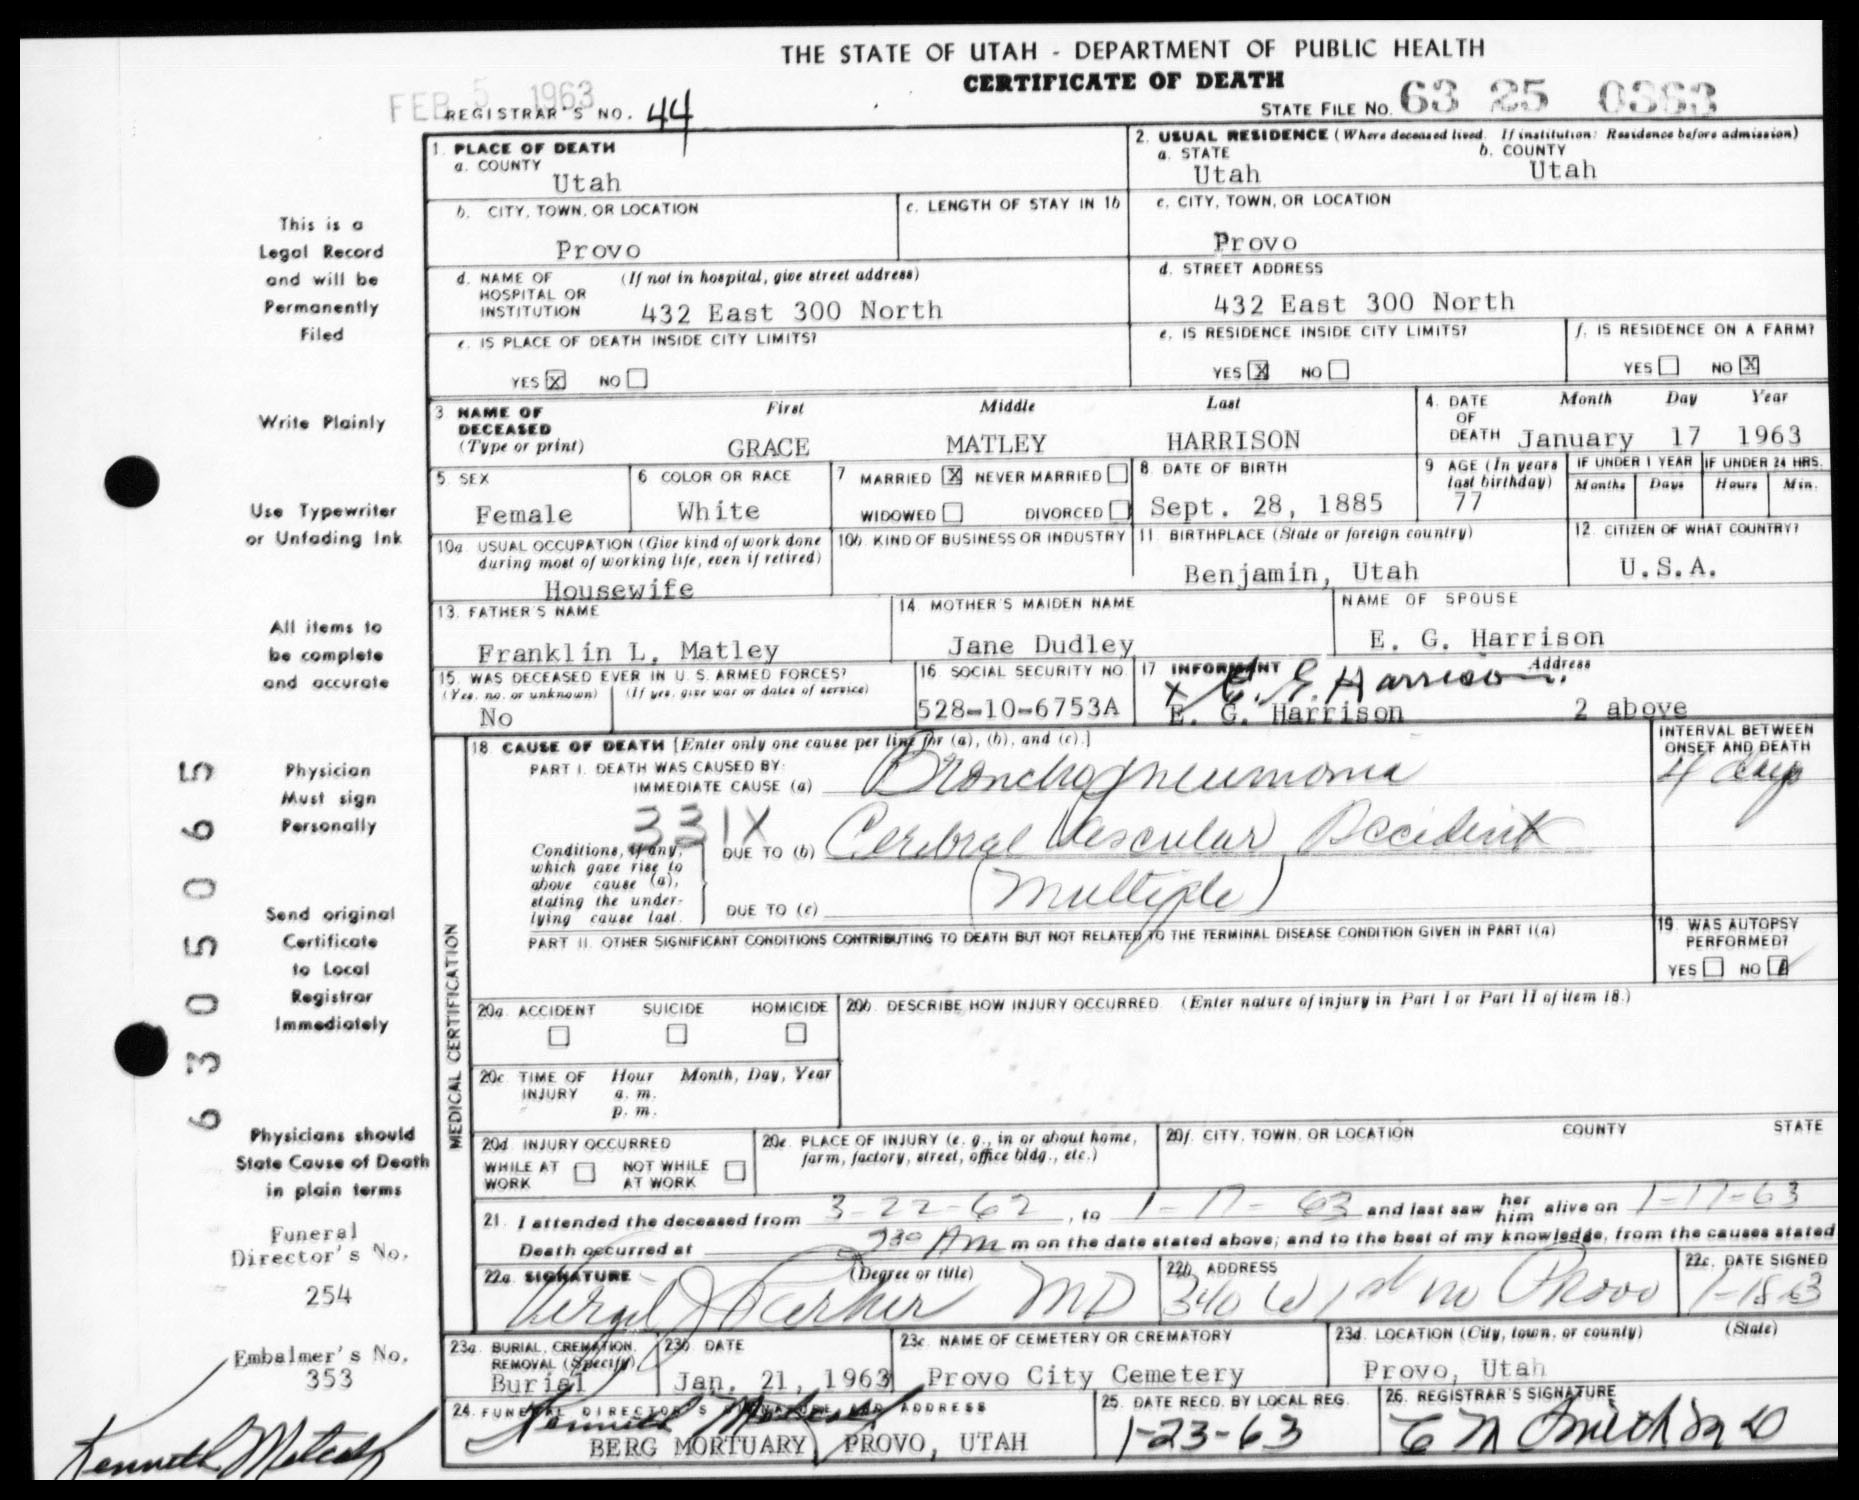 THE STATE OF UTAH - DEPARTMENT OF PUBLIC HEALTH
CERTIFICATE OF DEATH
FEB 5 1963
REGISTRAR'S NO. 44
STATE FILE NO. 63 25 0363
1. PLACE OF DEATH
a. COUNTY
Utah
2. USUAL RESIDENCE (Where deceased lived. If institution: Residence before admission)
a. STATE b. COUNTY
Utah Utah
b. CITY, TOWN, OR LOCATION
Provo
c. LENGTH OF STAY IN 1b
c. CITY, TOWN, OR LOCATION
Provo
d. NAME OF HOSPITAL OR INSTITUTION (If not in hospital, give street address)
432 East 300 North
d. STREET ADDRESS
432 East 300 North
e. IS PLACE OF DEATH INSIDE CITY LIMITS?
YES X NO
e. IS RESIDENCE INSIDE CITY LIMITS?
YES X NO
f. IS RESIDENCE ON A FARM?
YES NO X
3 NAME OF DECEASED (Type or print) First Middle Last
GRACE MATLEY HARRISON
4. DATE OF DEATH Month Day Year
January 17 1963
5. SEX
Female
6 COLOR OR RACE
White
7 MARRIED X NEVER MARRIED
WIDOWED DIVORCED
8. DATE OF BIRTH
Sept. 28, 1885
9 AGE (In years last birthday)
77
IF UNDER 1 YEAR
Months Days
IF UNDER 24 HRS.
Hours Min.
10a. USUAL OCCUPATION (Give kind of work done during most of working life, even if retired)
Housewife
10b. KIND OF BUSINESS OR INDUSTRY
11. BIRTHPLACE (State or foreign country)
Benjamin, Utah
12. CITIZEN OF WHAT COUNTRY?
U.S.A.
13. FATHER'S NAME
Franklin L. Matley
14 MOTHER'S MAIDEN NAME
Jane Dudley
NAME OF SPOUSE
E. G. Harrison
15. WAS DECEASED EVER IN U. S. ARMED FORCES?
(Yes, no, or unknown) (If yes, give war or dates of service)
No
16 SOCIAL SECURITY NO.
528-10-6753A
17 INFORMANT Address
x E. G. Harrison.
E. G. Harrison 2 above
18. CAUSE OF DEATH [Enter only one cause per line for (a), (b), and (c).]
INTERVAL BETWEEN ONSET AND DEATH
PART I. DEATH WAS CAUSED BY:
IMMEDIATE CAUSE (a) Bronchopneumonia 4 days
331X
Conditions, if any, which gave rise to above cause (a), stating the underlying cause last.
DUE TO (b) Cerebral Vascular Accident
(Multiple)
DUE TO (c)
PART II. OTHER SIGNIFICANT CONDITIONS CONTRIBUTING TO DEATH BUT NOT RELATED TO THE TERMINAL DISEASE CONDITION GIVEN IN PART I(a)
19. WAS AUTOPSY PERFORMED?
YES NO
MEDICAL CERTIFICATION
20a. ACCIDENT SUICIDE HOMICIDE
20b. DESCRIBE HOW INJURY OCCURRED. (Enter nature of injury in Part I or Part II of item 18.)
20c. TIME OF INJURY Hour Month, Day, Year
a. m.
p. m.
20d. INJURY OCCURRED
WHILE AT WORK NOT WHILE AT WORK
20e. PLACE OF INJURY (e. g., in or about home, farm, factory, street, office bldg., etc.)
20f. CITY, TOWN, OR LOCATION COUNTY STATE
21. I attended the deceased from 3-22-62, to 1-17-63 and last saw her him alive on 1-17-63
Death occurred at 7 30 Am m on the date stated above; and to the best of my knowledge, from the causes stated
22a. SIGNATURE (Degree or title)
MD
22b. ADDRESS
340 W 1st no Provo
22c. DATE SIGNED
1-18-63
23a. BURIAL, CREMATION, REMOVAL (Specify)
Burial
23b. DATE
Jan. 21, 1963
23c. NAME OF CEMETERY OR CREMATORY
Provo City Cemetery
23d. LOCATION (City, town, or county) (State)
Provo, Utah
24. FUNERAL DIRECTOR'S SIGNATURE AND ADDRESS
Kenneth Metcalf
BERG MORTUARY, PROVO, UTAH
25. DATE RECD. BY LOCAL REG.
1-23-63
26. REGISTRAR'S SIGNATURE
This is a
Legal Record
and will be
Permanently
Filed
Write Plainly
Use Typewriter
or Unfading Ink
All items to
be complete
and accurate
Physician
Must sign
Personally
Send original
Certificate
to Local
Registrar
Immediately
Physicians should
State Cause of Death
in plain terms
Funeral
Director's No.
254
Embalmer's No.
353
Kenneth Metcalf
6305065